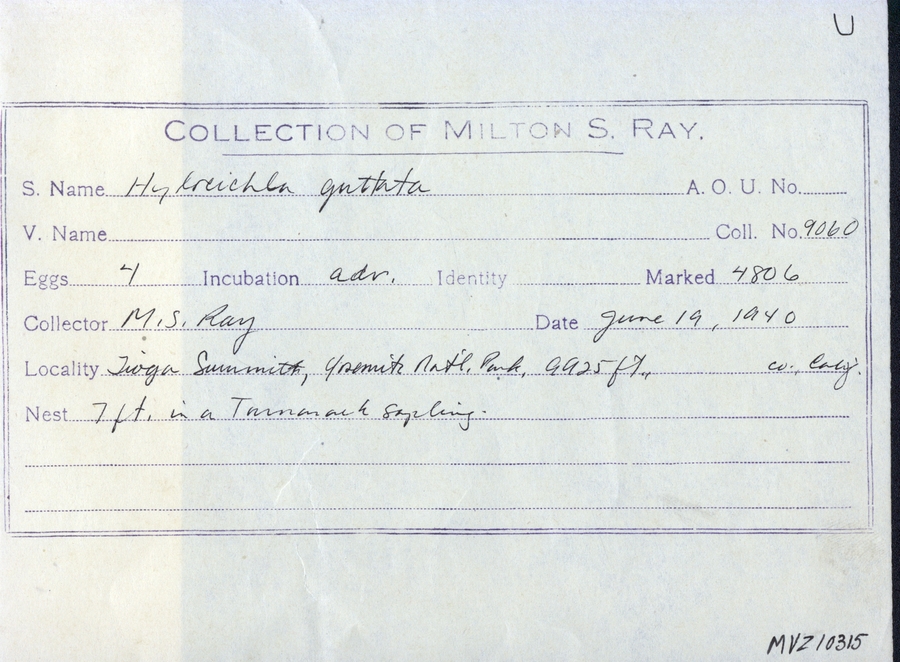 U
COLLECTION OF MILTON S. RAY.
S. Name Hylocichla guttata A. O. U. No.
V. Name Coll. No. 9060
Eggs 4 Incubation adv. Identity Marked 4806
Collector M.S. Ray Date June 19, 1940
Locality Tioga Summit, Yosemite Nat'l. Park, 9925 ft., co., Calif.
Nest 7 ft. in a Tamarack sapling.
MVZ 10315